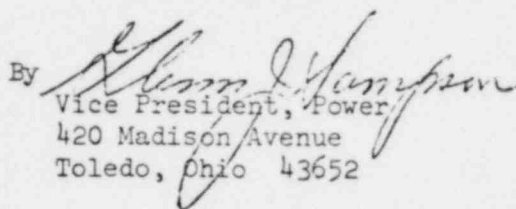 By Glenn J Sampson
Vice President, Power
420 Madison Avenue
Toledo, Ohio 43652